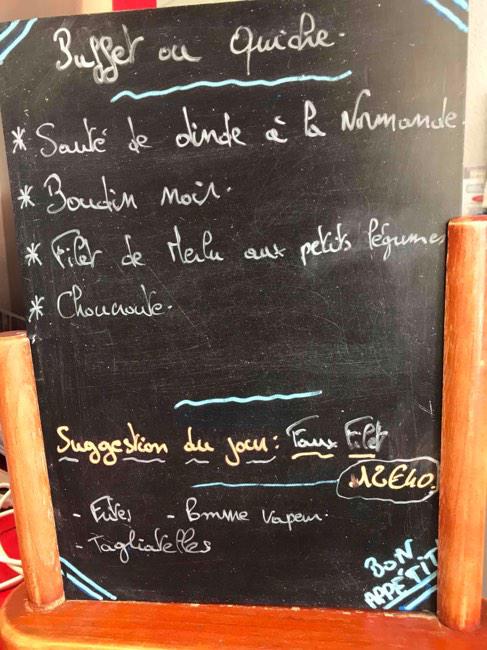 Buffet ou Quiche.
* Sauté de dinde à la Normande.
* Boudin noir.
* Filet de Merlu aux petits légumes
* Choucroute.
Suggestion du jour: Faux Filet
12€40.
- Frites - Pomme vapeur.
- Tagliatelles
BON
APPÉTIT